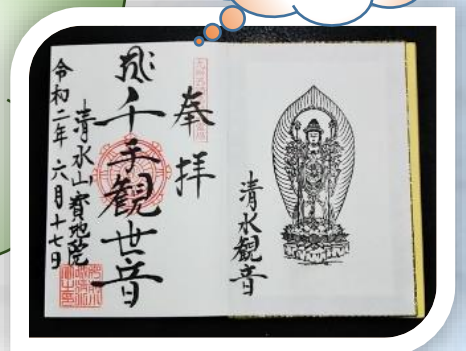 清水観音
奉拝
千手観世音
清水山寳地院
令和二年 六月十七日